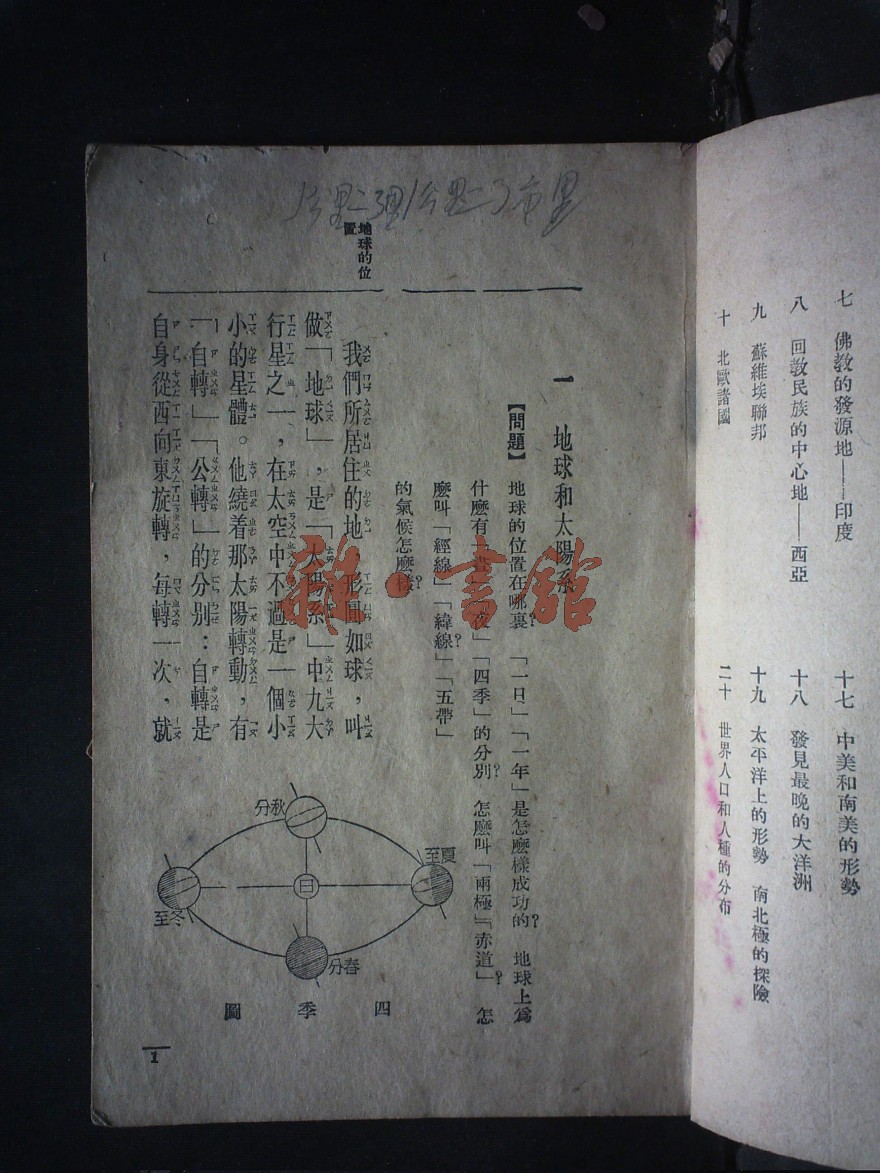 七 佛教的發源地——印度
八 回教民族的中心地——西亞
九 蘇維埃聯邦
十 北歐諸國
十七 中美和南美的形勢
十八 發見最晚的大洋洲
十九 太平洋上的形勢 南北極的探險
二十 世界人口和人種的分布
地球的位置
一 地球和太陽系
【問題】 地球的位置在哪裏?「一日」「一年」是怎麼樣成功的? 地球上爲
什麼有「晝」「夜」「四季」的分別? 怎麼叫「兩極」「赤道」? 怎
麼叫「經線」「緯線」?「五帶」
的氣候怎麼樣?
我們所居住的地,形圓如球,叫
做「地球」,是「太陽系」中九大
行星之一,在太空中不過是一個小
小的星體。他繞着那太陽轉動,有
「自轉」「公轉」的分别:自轉是
自身從西向東旋轉,每轉一次,就
分秋
至夏
日
至冬
分春
圖季四
1
雜·書館